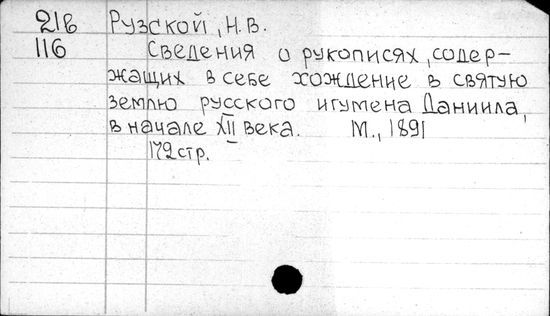 21в Рузской, Н.В.
116 Сведения о рукописях, содер-
жащих в себе хождение в святую
землю русского игумена Даниила,
в начале XII века. М., 1891
172стр.